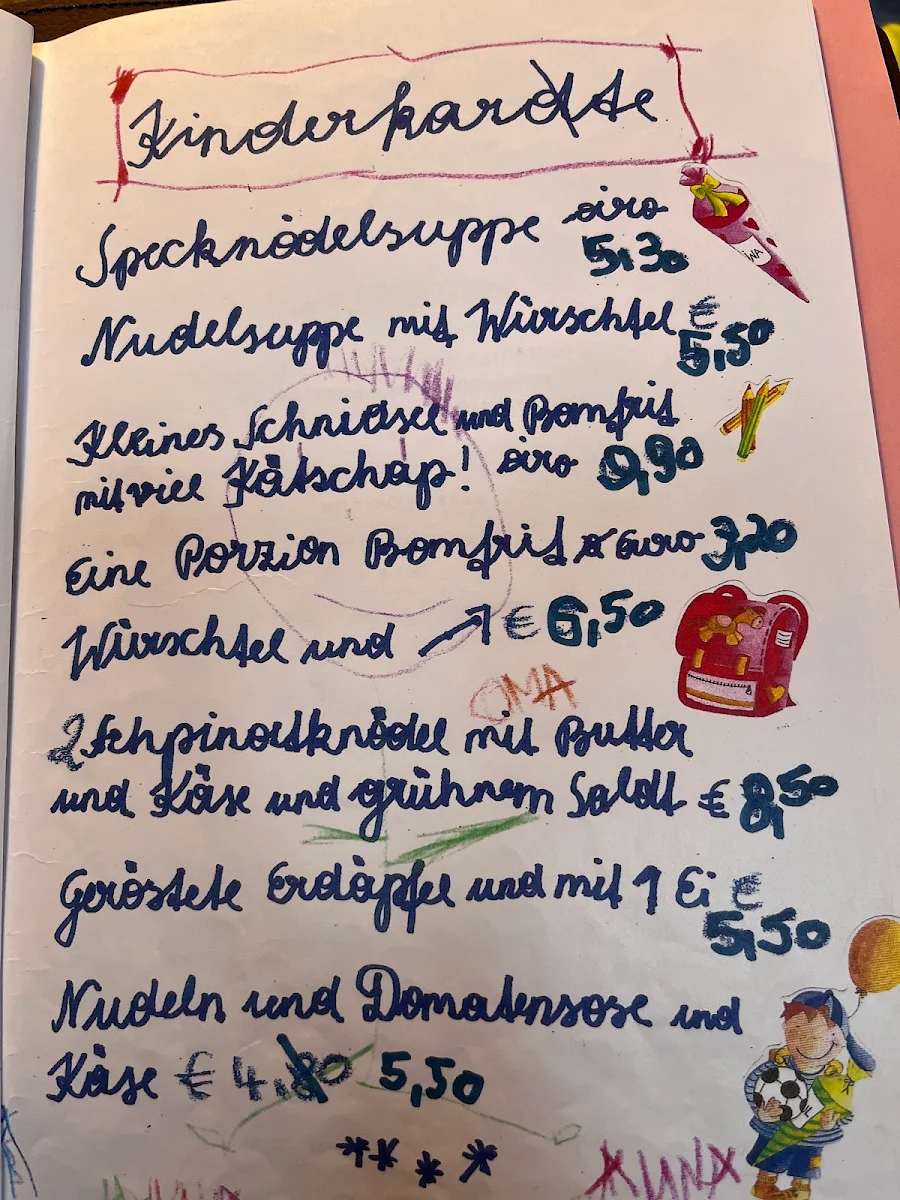 Kinderkardte
Specknödelsuppe öiro
5,30
Nudelsuppe mit Würschtel €
5,50
Kleines Schnidsel und Bomfrit
mit viel Kätschap! öiro 9,90
Eine Porzion Bomfrit Euro 3,20
Würschtel und € 6,50
OMA
2 Schpinattknödel mit Butter
und Käse und grühnem Saldt € 8,50
Geröstete Erdäpfel und mit 1 Ei €
5,50
Nudeln und Domatensose und
Käse € 4,80 5,50